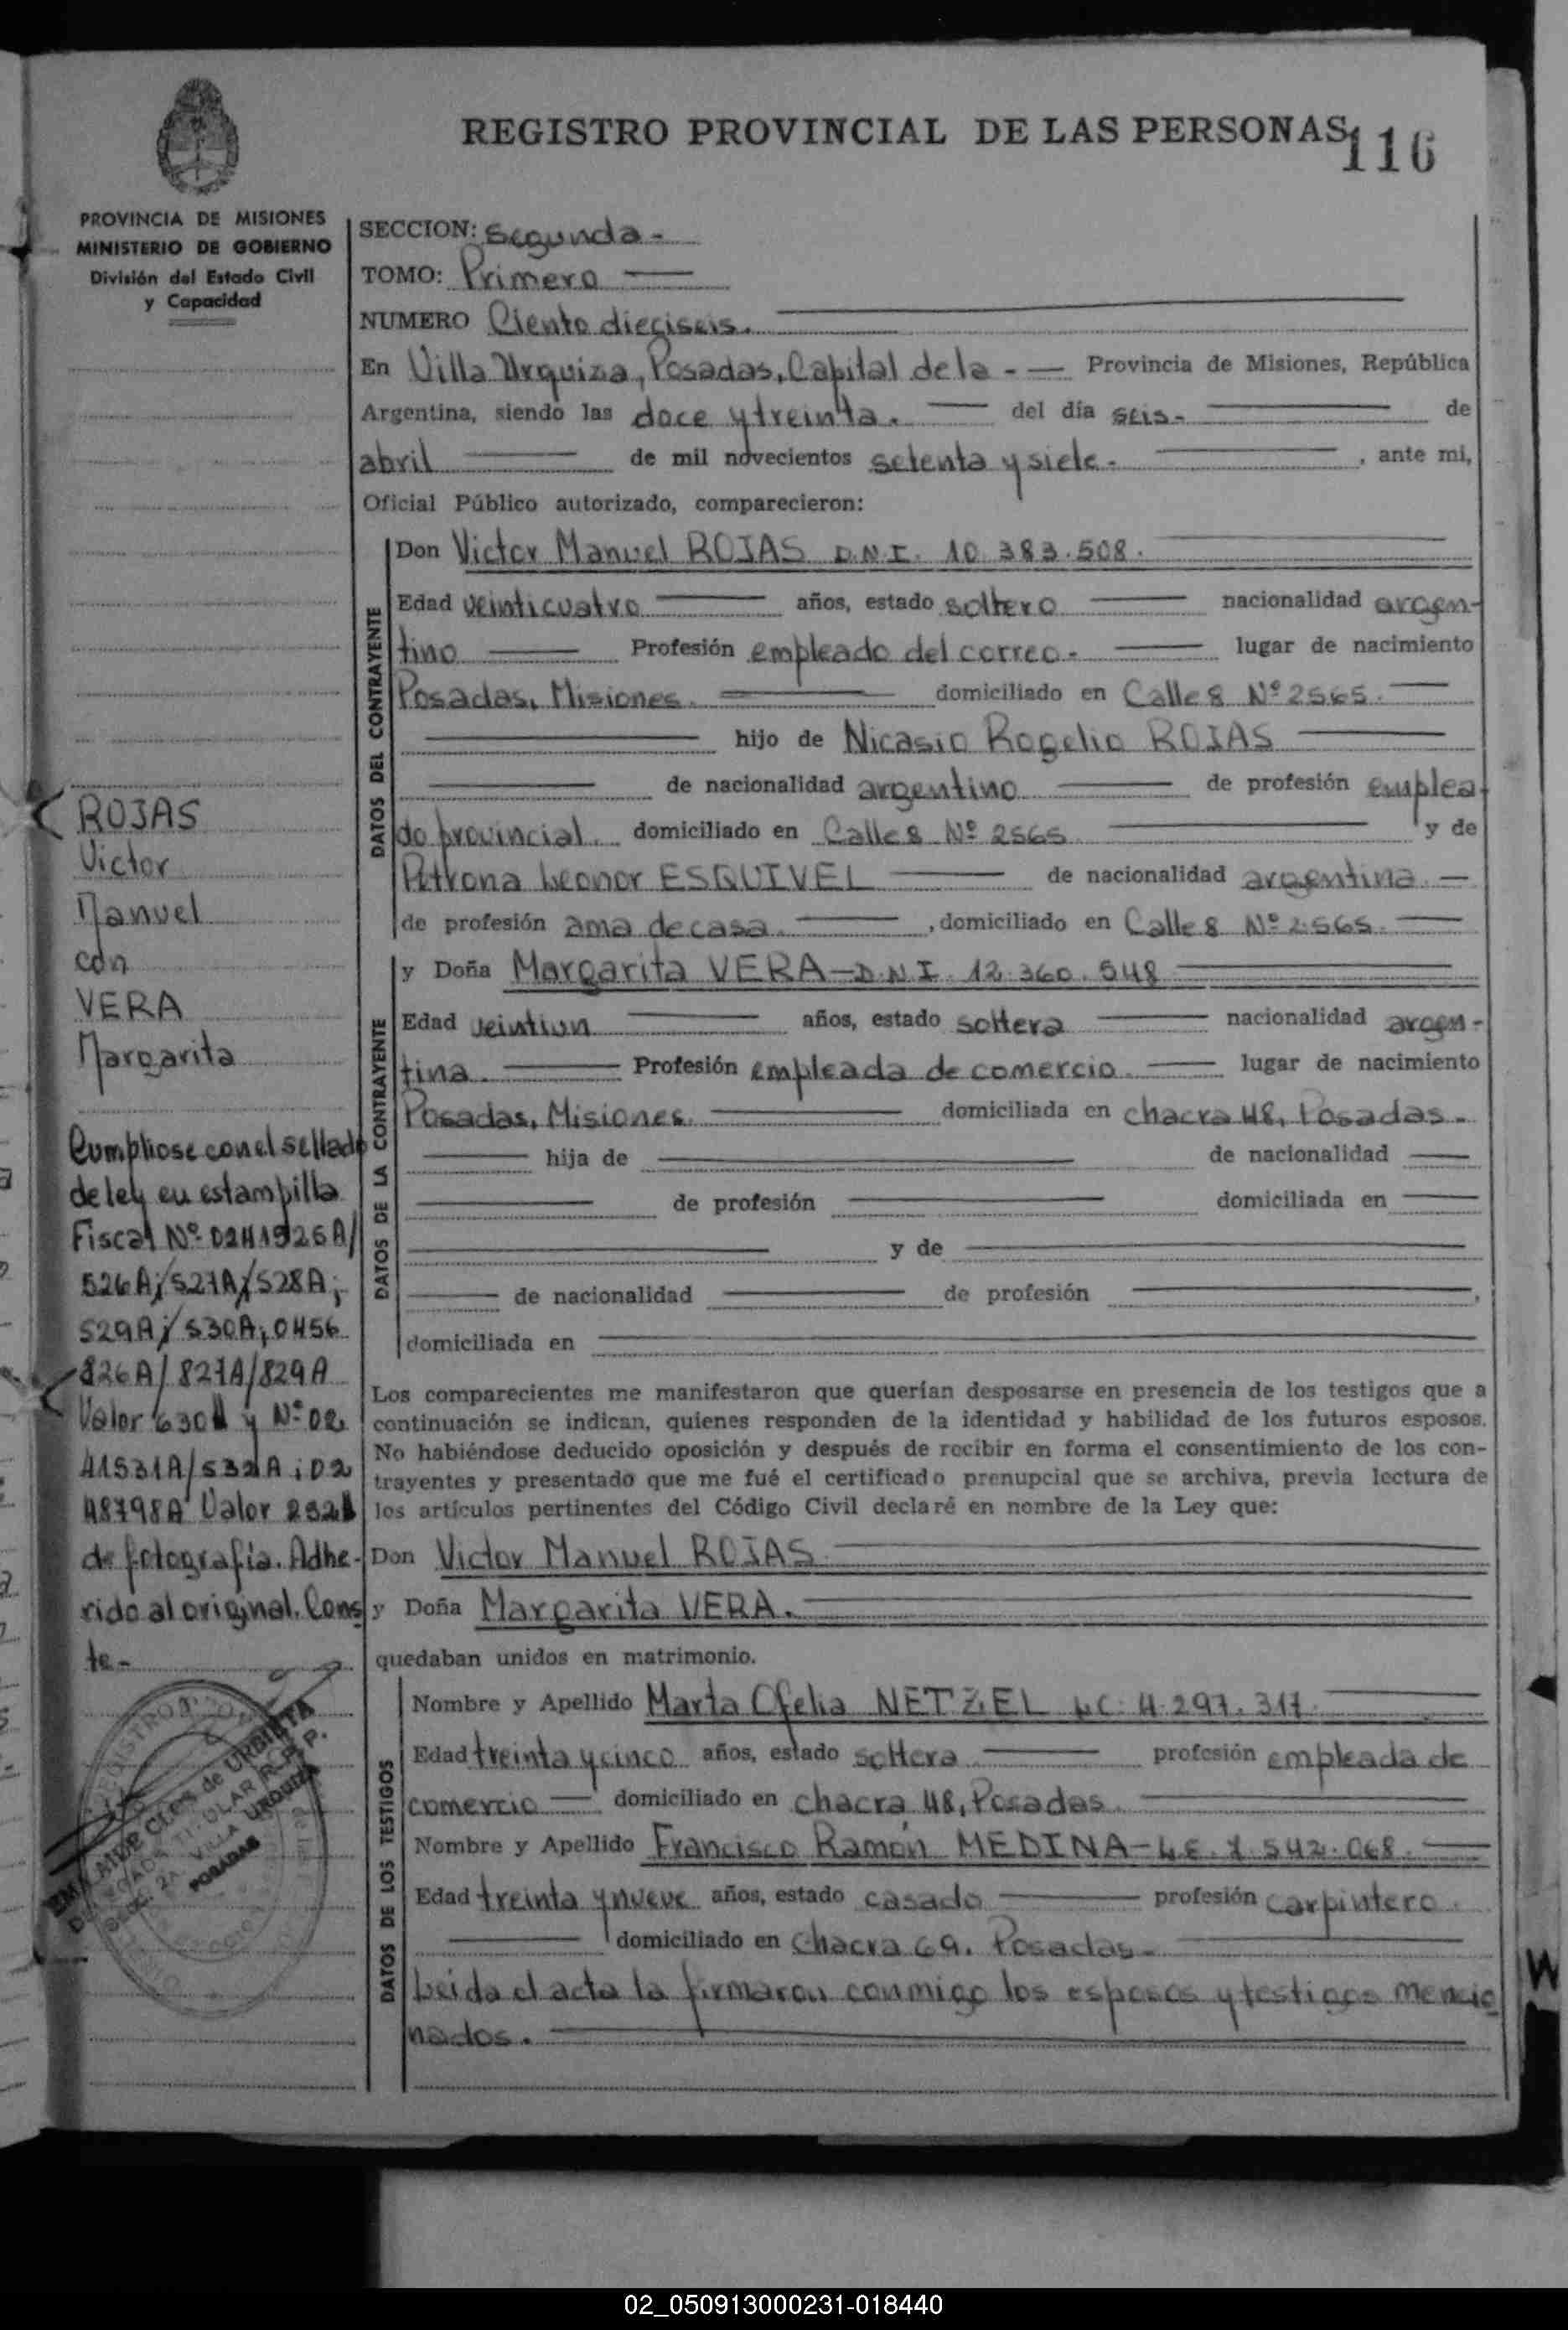 REGISTRO PROVINCIAL DE LAS PERSONAS
116
PROVINCIA DE MISIONES
MINISTERIO DE GOBIERNO
División del Estado Civil
y Capacidad
SECCION: Segunda -
TOMO: Primero
NUMERO Ciento dieciseis.
En Villa Urquiza, Posadas, Capital de la - Provincia de Misiones, República
Argentina, siendo las doce y treinta. del día seis- de
abril de mil novecientos setenta y siete. , ante mi,
Oficial Público autorizado, comparecieron:
DATOS DEL CONTRAYENTE
Don Victor Manuel ROJAS D.N.I. 10.383.508.
Edad veinticuatro años, estado soltero nacionalidad argen-
tino Profesión empleado del correo- lugar de nacimiento
Posadas, Misiones. domiciliado en Calle 8 Nº 2565.
hijo de Nicasio Rogelio ROJAS
de nacionalidad argentino de profesión emplea-
do provincial. domiciliado en Calle 8 Nº 2565 y de
Petrona Leonor ESQUIVEL de nacionalidad argentina.
de profesión ama de casa. , domiciliado en Calle 8 Nº 2565.
DATOS DE LA CONTRAYENTE
y Doña Margarita VERA - D.N.I. 12.360.548
Edad veintiun años, estado soltera nacionalidad argen-
tina. Profesión empleada de comercio. lugar de nacimiento
Posadas, Misiones. domiciliada en chacra 48, Posadas.
hija de de nacionalidad
de profesión domiciliada en
y de
de nacionalidad de profesión ,
domiciliada en
Los comparecientes me manifestaron que querían desposarse en presencia de los testigos que a
continuación se indican, quienes responden de la identidad y habilidad de los futuros esposos.
No habiéndose deducido oposición y después de recibir en forma el consentimiento de los con-
trayentes y presentado que me fué el certificado prenupcial que se archiva, previa lectura de
los artículos pertinentes del Código Civil declaré en nombre de la Ley que:
Don Victor Manuel ROJAS
y Doña Margarita VERA.
quedaban unidos en matrimonio.
DATOS DE LOS TESTIGOS
Nombre y Apellido Marta Ofelia NETZEL LC. 4.297.317.
Edad treinta y cinco años, estado soltera profesión empleada de
comercio domiciliado en chacra 48, Posadas.
Nombre y Apellido Francisco Ramón MEDINA - L.E. 7.542.068.
Edad treinta y nueve años, estado casado profesión carpintero.
domiciliado en Chacra 69. Posadas.
Leida el acta la firmaron conmigo los esposos y testigos mencio
nados.
ROJAS
Victor
Manuel
con
VERA
Margarita
Cumpliose con el sellado
de ley en estampilla
Fiscal Nº 0241525A/
526A;/527A/528A;
529A;/530A; 0456
826A/827A/829A
Valor 630 y Nº 02
41531A/532A; 02
48798A Valor 232
de fotografia. Adhe-
rido al original. Cons
te-
EMA AIDE CLOS de URBIETA
DELEGADA TITULAR R.P.P.
SEC. 2A. VILLA URQUIZA
POSADAS
02_050913000231-018440